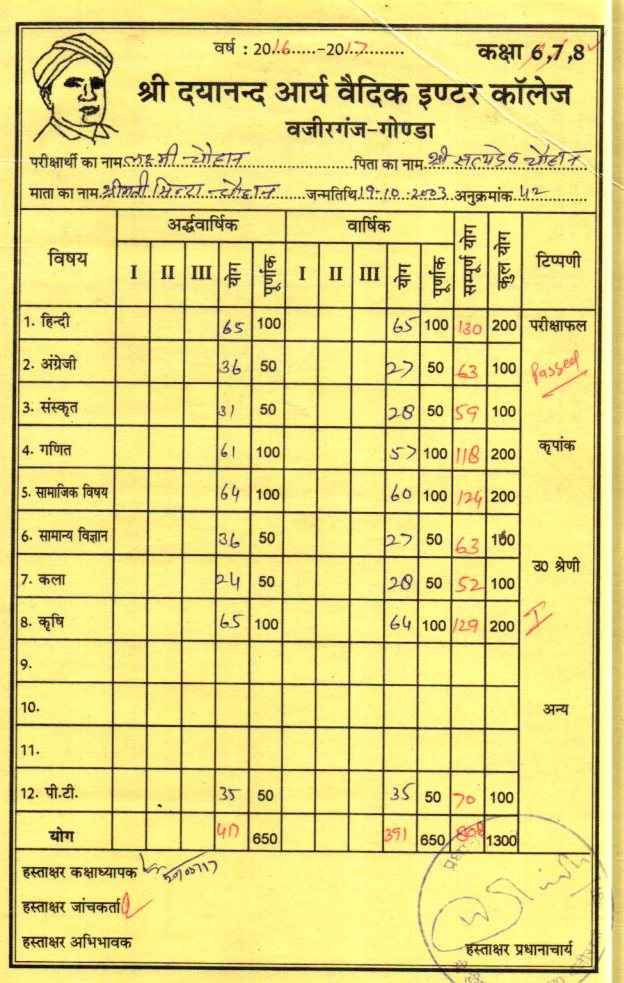 वर्ष : 2016.....-2017.......... कक्षा 6,7,8
श्री दयानन्द आर्य वैदिक इण्टर कॉलेज
वजीरगंज-गोण्डा
परीक्षार्थी का नाम लक्ष्मी चौहान पिता का नाम श्री सत्यदेव चौहान
माता का नाम श्रीमती चौहान जन्मतिथि 19-10-2003 अनुक्रमांक 42
विषय अर्द्धवार्षिक वार्षिक सम्पूर्ण योग कुल योग टिप्पणी
I II III योग पूर्णांक I II III योग पूर्णांक
1. हिन्दी 65 100 65 100 130 200 परीक्षाफल
2. अंग्रेजी 36 50 27 50 63 100 Passed
3. संस्कृत 31 50 28 50 59 100
4. गणित 61 100 57 100 118 200 कृपांक
5. सामाजिक विषय 64 100 60 100 124 200
6. सामान्य विज्ञान 36 50 27 50 63 100
7. कला 24 50 28 50 52 100 उ0 श्रेणी
8. कृषि 65 100 64 100 129 200 I
9.
10. अन्य
11.
12. पी.टी. 35 50 35 50 70 100
योग 417 650 391 650 808 1300
हस्ताक्षर कक्षाध्यापक
हस्ताक्षर जांचकर्ता
हस्ताक्षर अभिभावक हस्ताक्षर प्रधानाचार्य